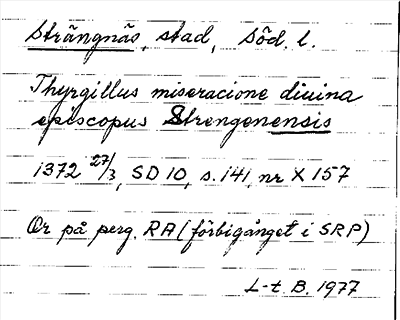 Strängnäs, stad, Söd. l.
Thyrgillus miseracione diuina
episcopus Strengenensis
1372 27/3, SD 10, s. 141, nr X 157
Or på perg. RA (förbigånget i SRP)
L-t. B. 1977